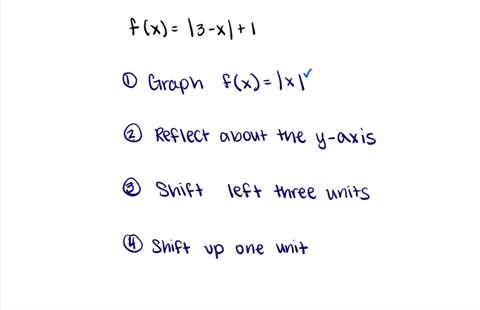 f(x) = |3-x| + 1
① Graph f(x) = |x| ✓
② Reflect about the y-axis
③ Shift left three units
④ Shift up one unit